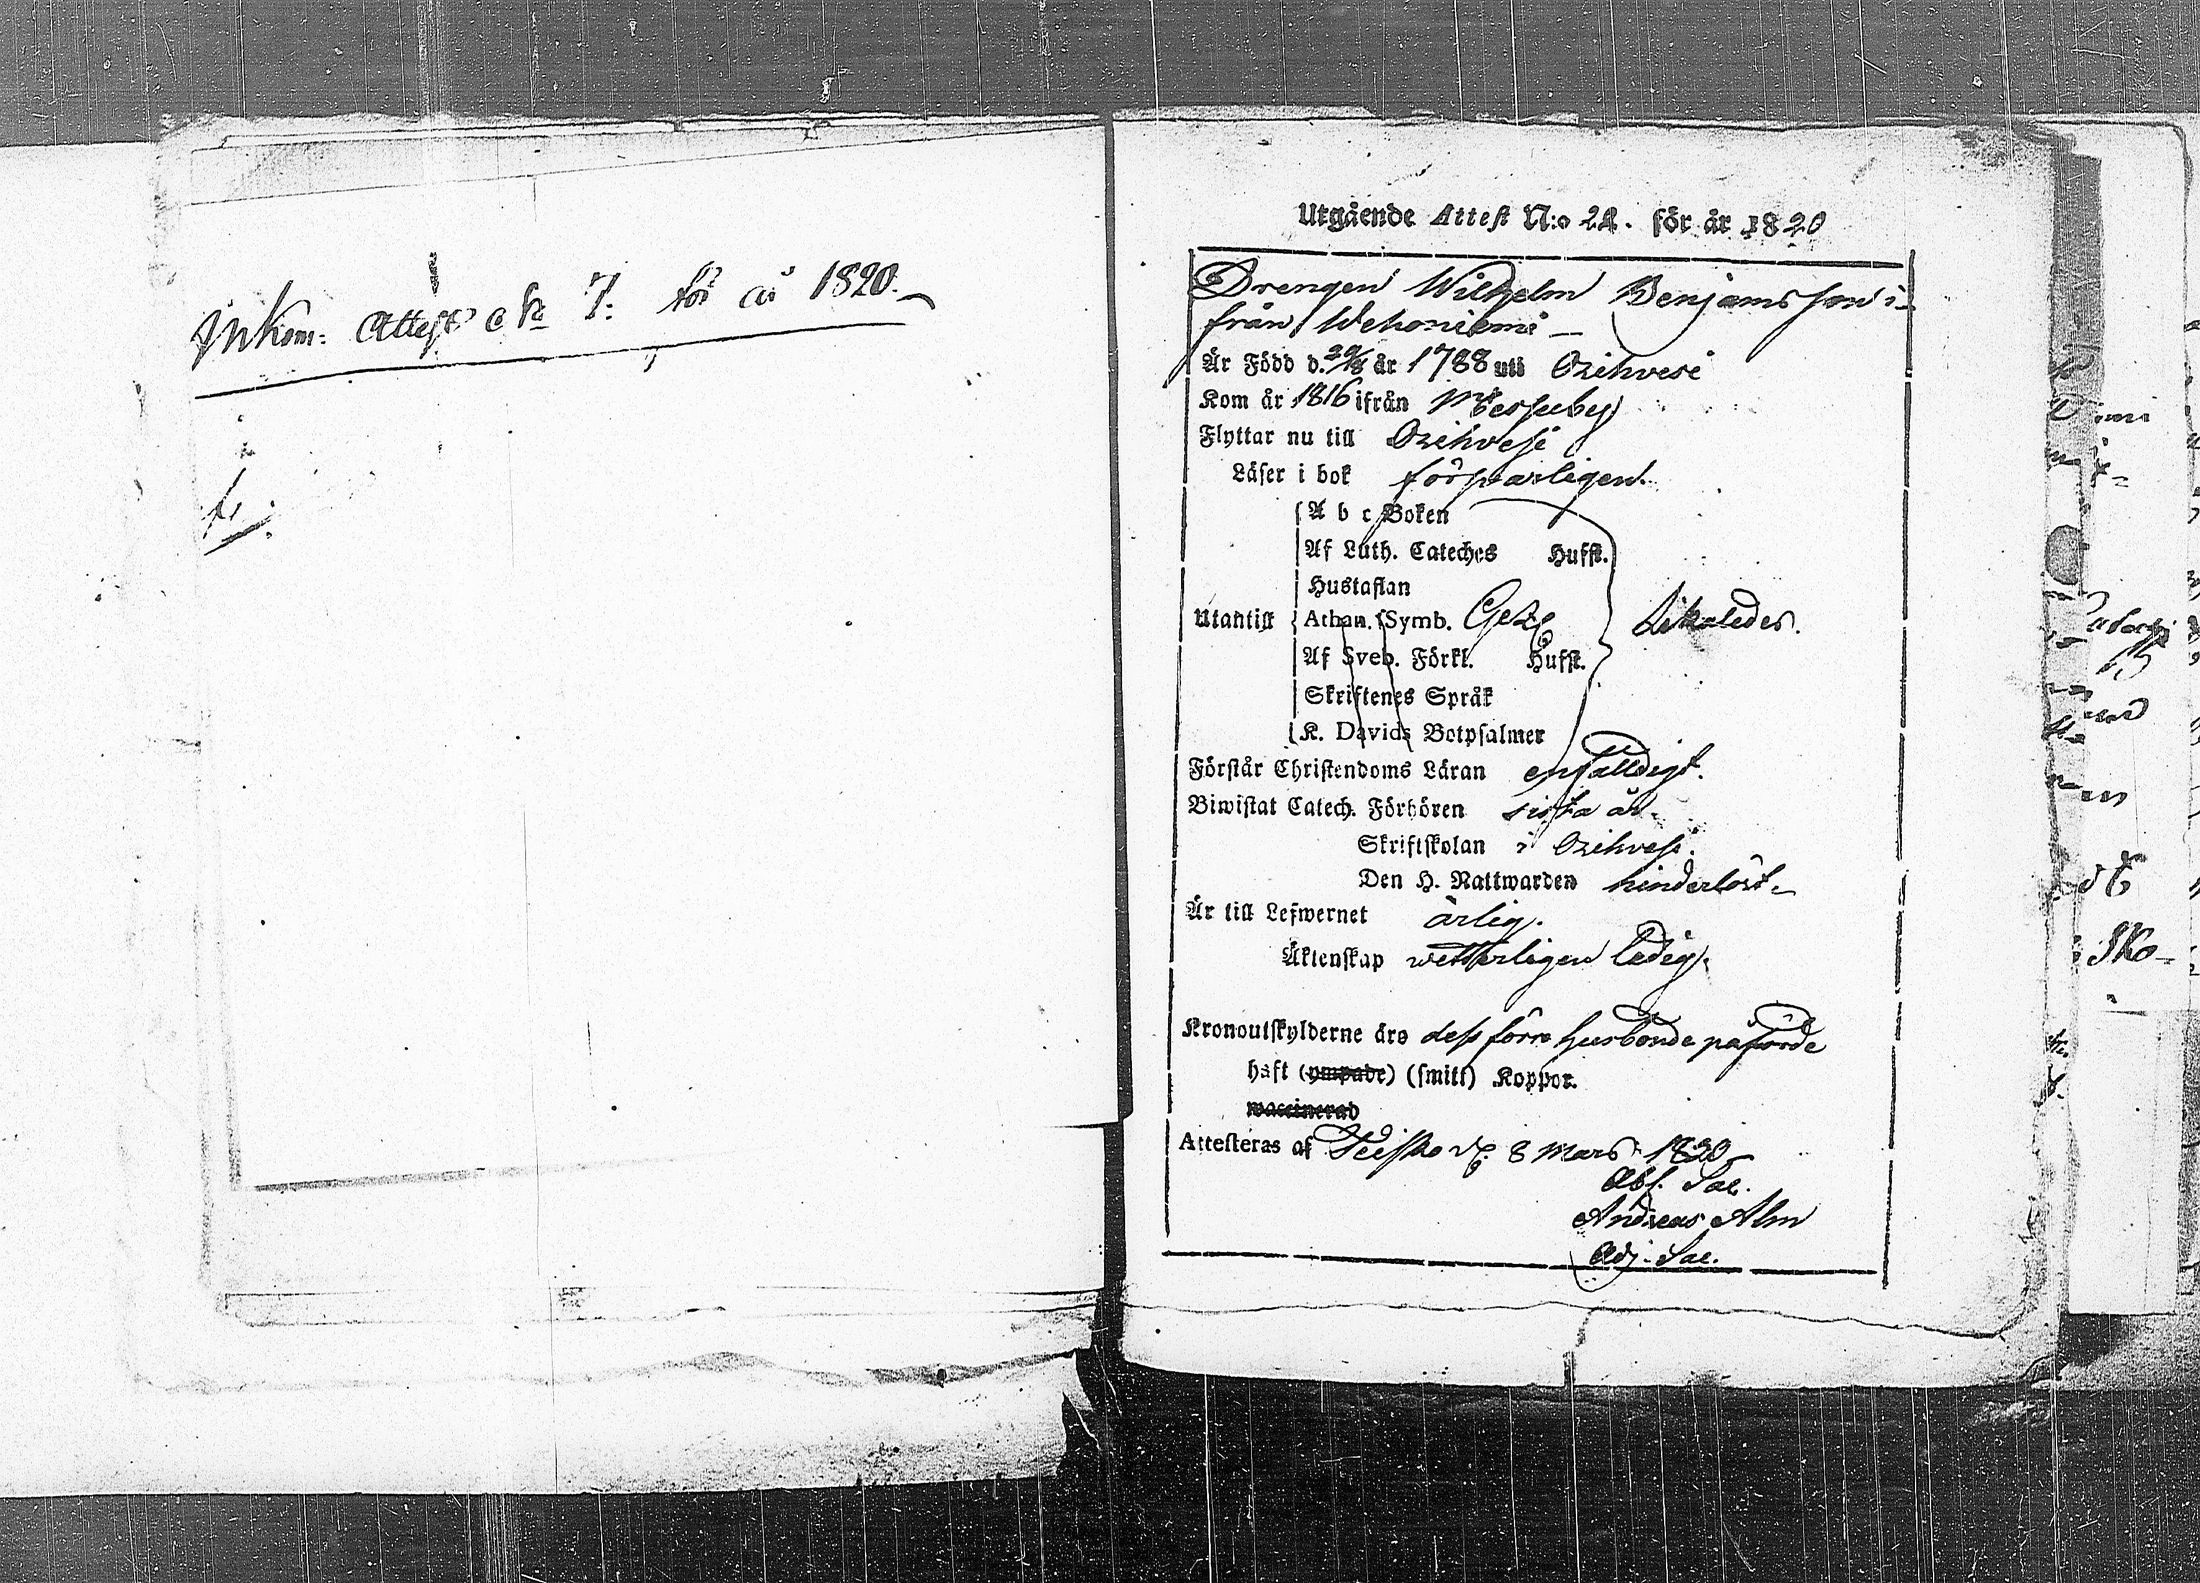 Inkom: Attest No 7. för år 1820.
Utgående Attest N:o 24. för år 1820
Drengen Wilhelm Benjamsson i-
från Wehoniemi
Är Född d. 29/8 år 1788 uti Orihvesi
Kom år 1816 ifrån Messuby
Flyttar nu till Orihvesi
Läser i bok försvarligen.
A b c Boken
Af Luth. Cateches Hufst.
Hustaflan
Utantill Athan. Symb. Gezel Likaledes.
Af Sveb. Förkl. Hufst.
Skriftenes Språk
K. Davids Botpsalmer
Förstår Christendoms Läran enfalldigt.
Biwistat Catech. Förhören sista år.
Skriftskolan i Orihvesi.
Den H. Nattwarden hinderlöst.
Är till Lefwernet ärlig.
Äktenskap wetterligen ledig.
Kronoutskylderne äro dess förre husbonde påförde
haft (ympade) (smitt) Koppor.
waccinerad
Attesteras af Teisko d. 8 Mars 1820
Abs. Sac.
Andreas Alm
Adj. Sac.